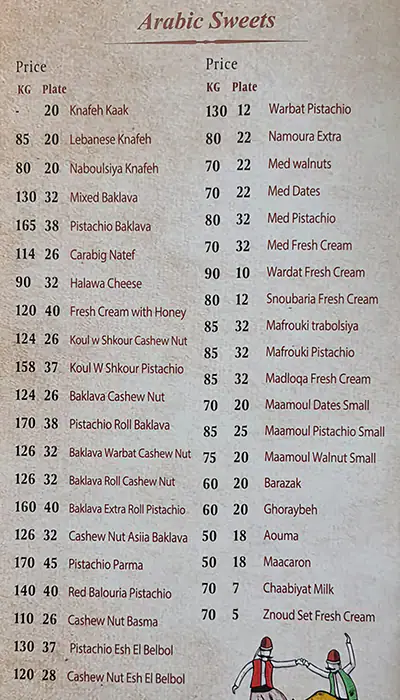 Arabic Sweets
Price
KG Plate
- 20 Knafeh Kaak
85 20 Lebanese Knafeh
80 20 Naboulsiya Knafeh
130 32 Mixed Baklava
165 38 Pistachio Baklava
114 26 Carabig Natef
90 32 Halawa Cheese
120 40 Fresh Cream with Honey
124 26 Koul w Shkour Cashew Nut
158 37 Koul W Shkour Pistachio
124 26 Baklava Cashew Nut
170 38 Pistachio Roll Baklava
126 32 Baklava Warbat Cashew Nut
126 32 Baklava Roll Cashew Nut
160 40 Baklava Extra Roll Pistachio
126 32 Cashew Nut Asiia Baklava
170 45 Pistachio Parma
140 40 Red Balouria Pistachio
110 26 Cashew Nut Basma
130 37 Pistachio Esh El Belbol
120 28 Cashew Nut Esh El Belbol
Price
KG Plate
130 12 Warbat Pistachio
80 22 Namoura Extra
70 22 Med walnuts
70 22 Med Dates
80 32 Med Pistachio
70 32 Med Fresh Cream
90 10 Wardat Fresh Cream
80 12 Snoubaria Fresh Cream
85 32 Mafrouki trabolsiya
85 32 Mafrouki Pistachio
85 32 Madloqa Fresh Cream
70 20 Maamoul Dates Small
85 25 Maamoul Pistachio Small
75 20 Maamoul Walnut Small
60 20 Barazak
60 20 Ghoraybeh
50 18 Aouma
50 18 Maacaron
70 7 Chaabiyat Milk
70 5 Znoud Set Fresh Cream